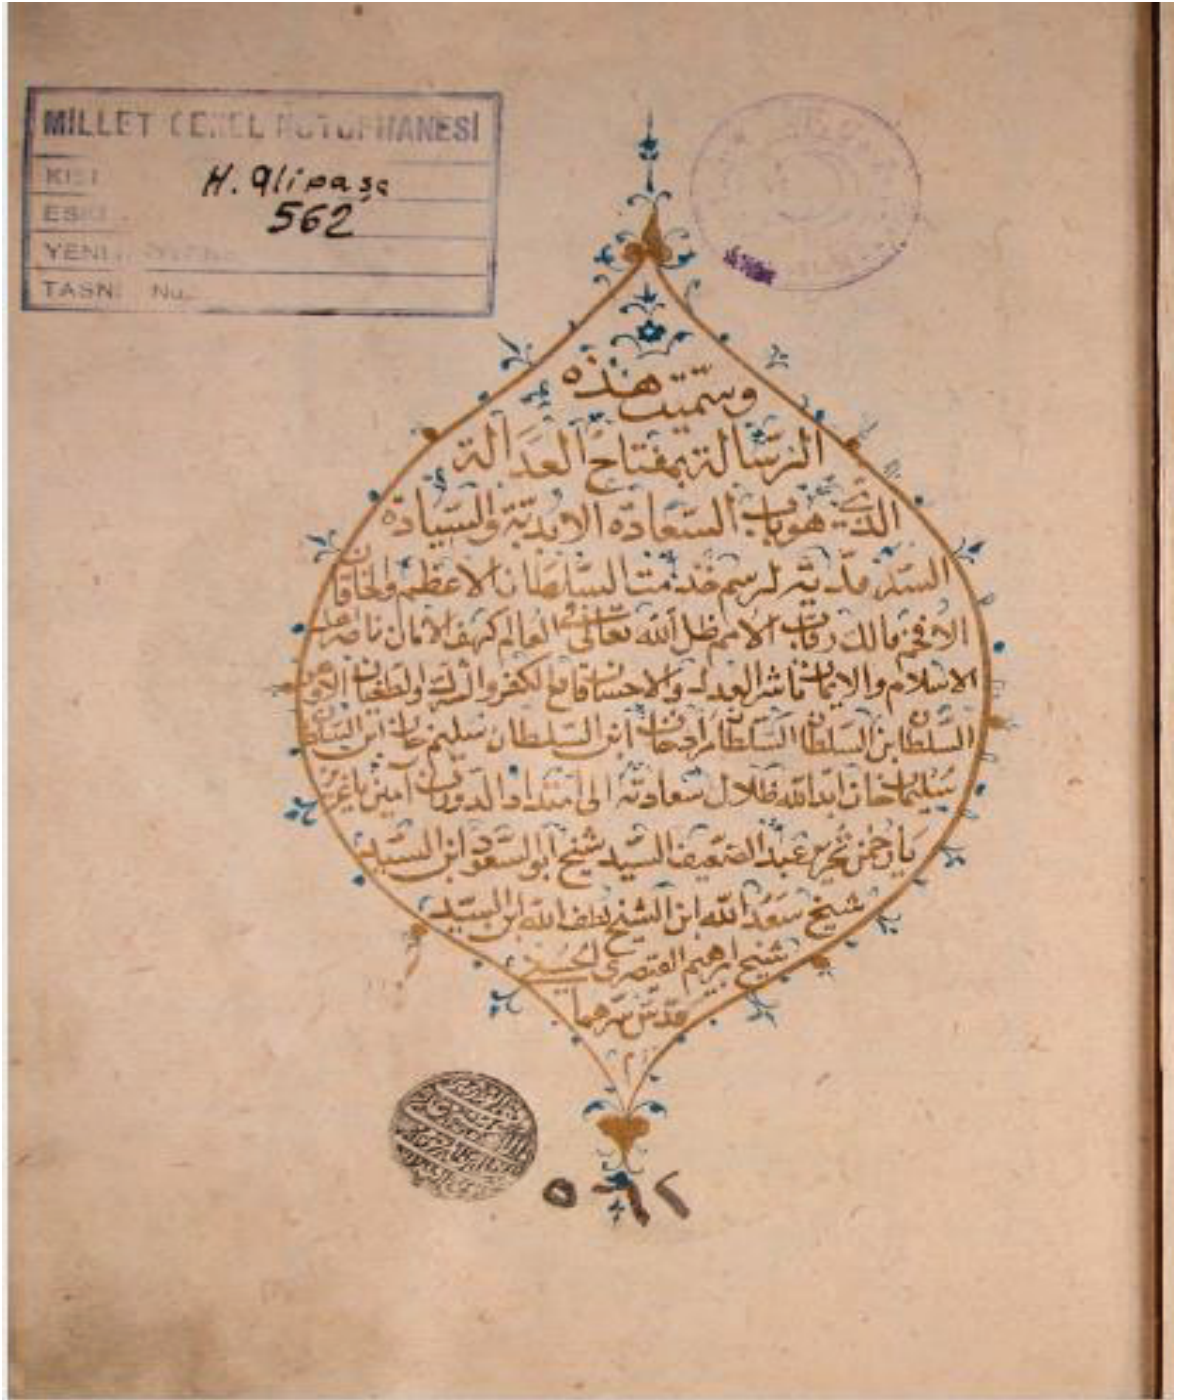 MİLLET GENEL KÜTÜPHANESİ
H. Alipaşa
562
ESKİ
YENİ
TASN. No.
وسمّيت هذه
الرسالة بمفتاح العدالة
الذي هو باب السعادة الابدية والسيادة
السرمدية لرسم خدمت السلطان الاعظم والخاقان
الافخم مالك رقاب الامم ظل الله تعالى في العالم كهف الامان ناصر
الاسلام والايمان ناشر العدل والاحسان قامع الكفر والشرك والطغيان
السلطان ابن السلطان السلطان مراد خان ابن السلطان سليم خان ابن السلطان
سليمان خان ابد الله ظلال سعادته الى امتداد الدوران آمين يا
يا رحمن تحرير عبد الضعيف السيد شيخ ابو السعود ابن السيد
شيخ سعد الله ابن الشيخ لطف الله ابن السيد
شيخ ابرهيم القيصرى الحسيني
قدّس سرهما
٥٦٢